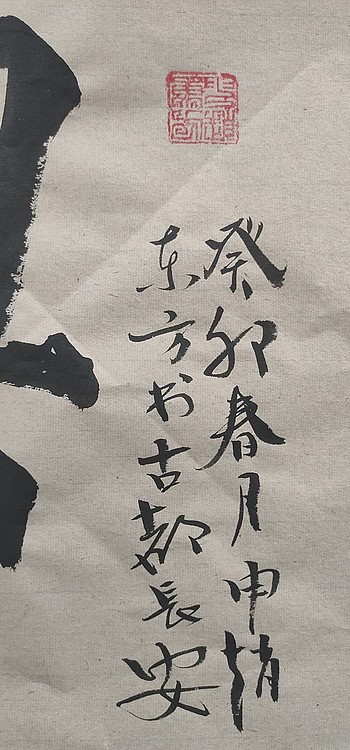 癸卯春月申趙
东方书古都長安